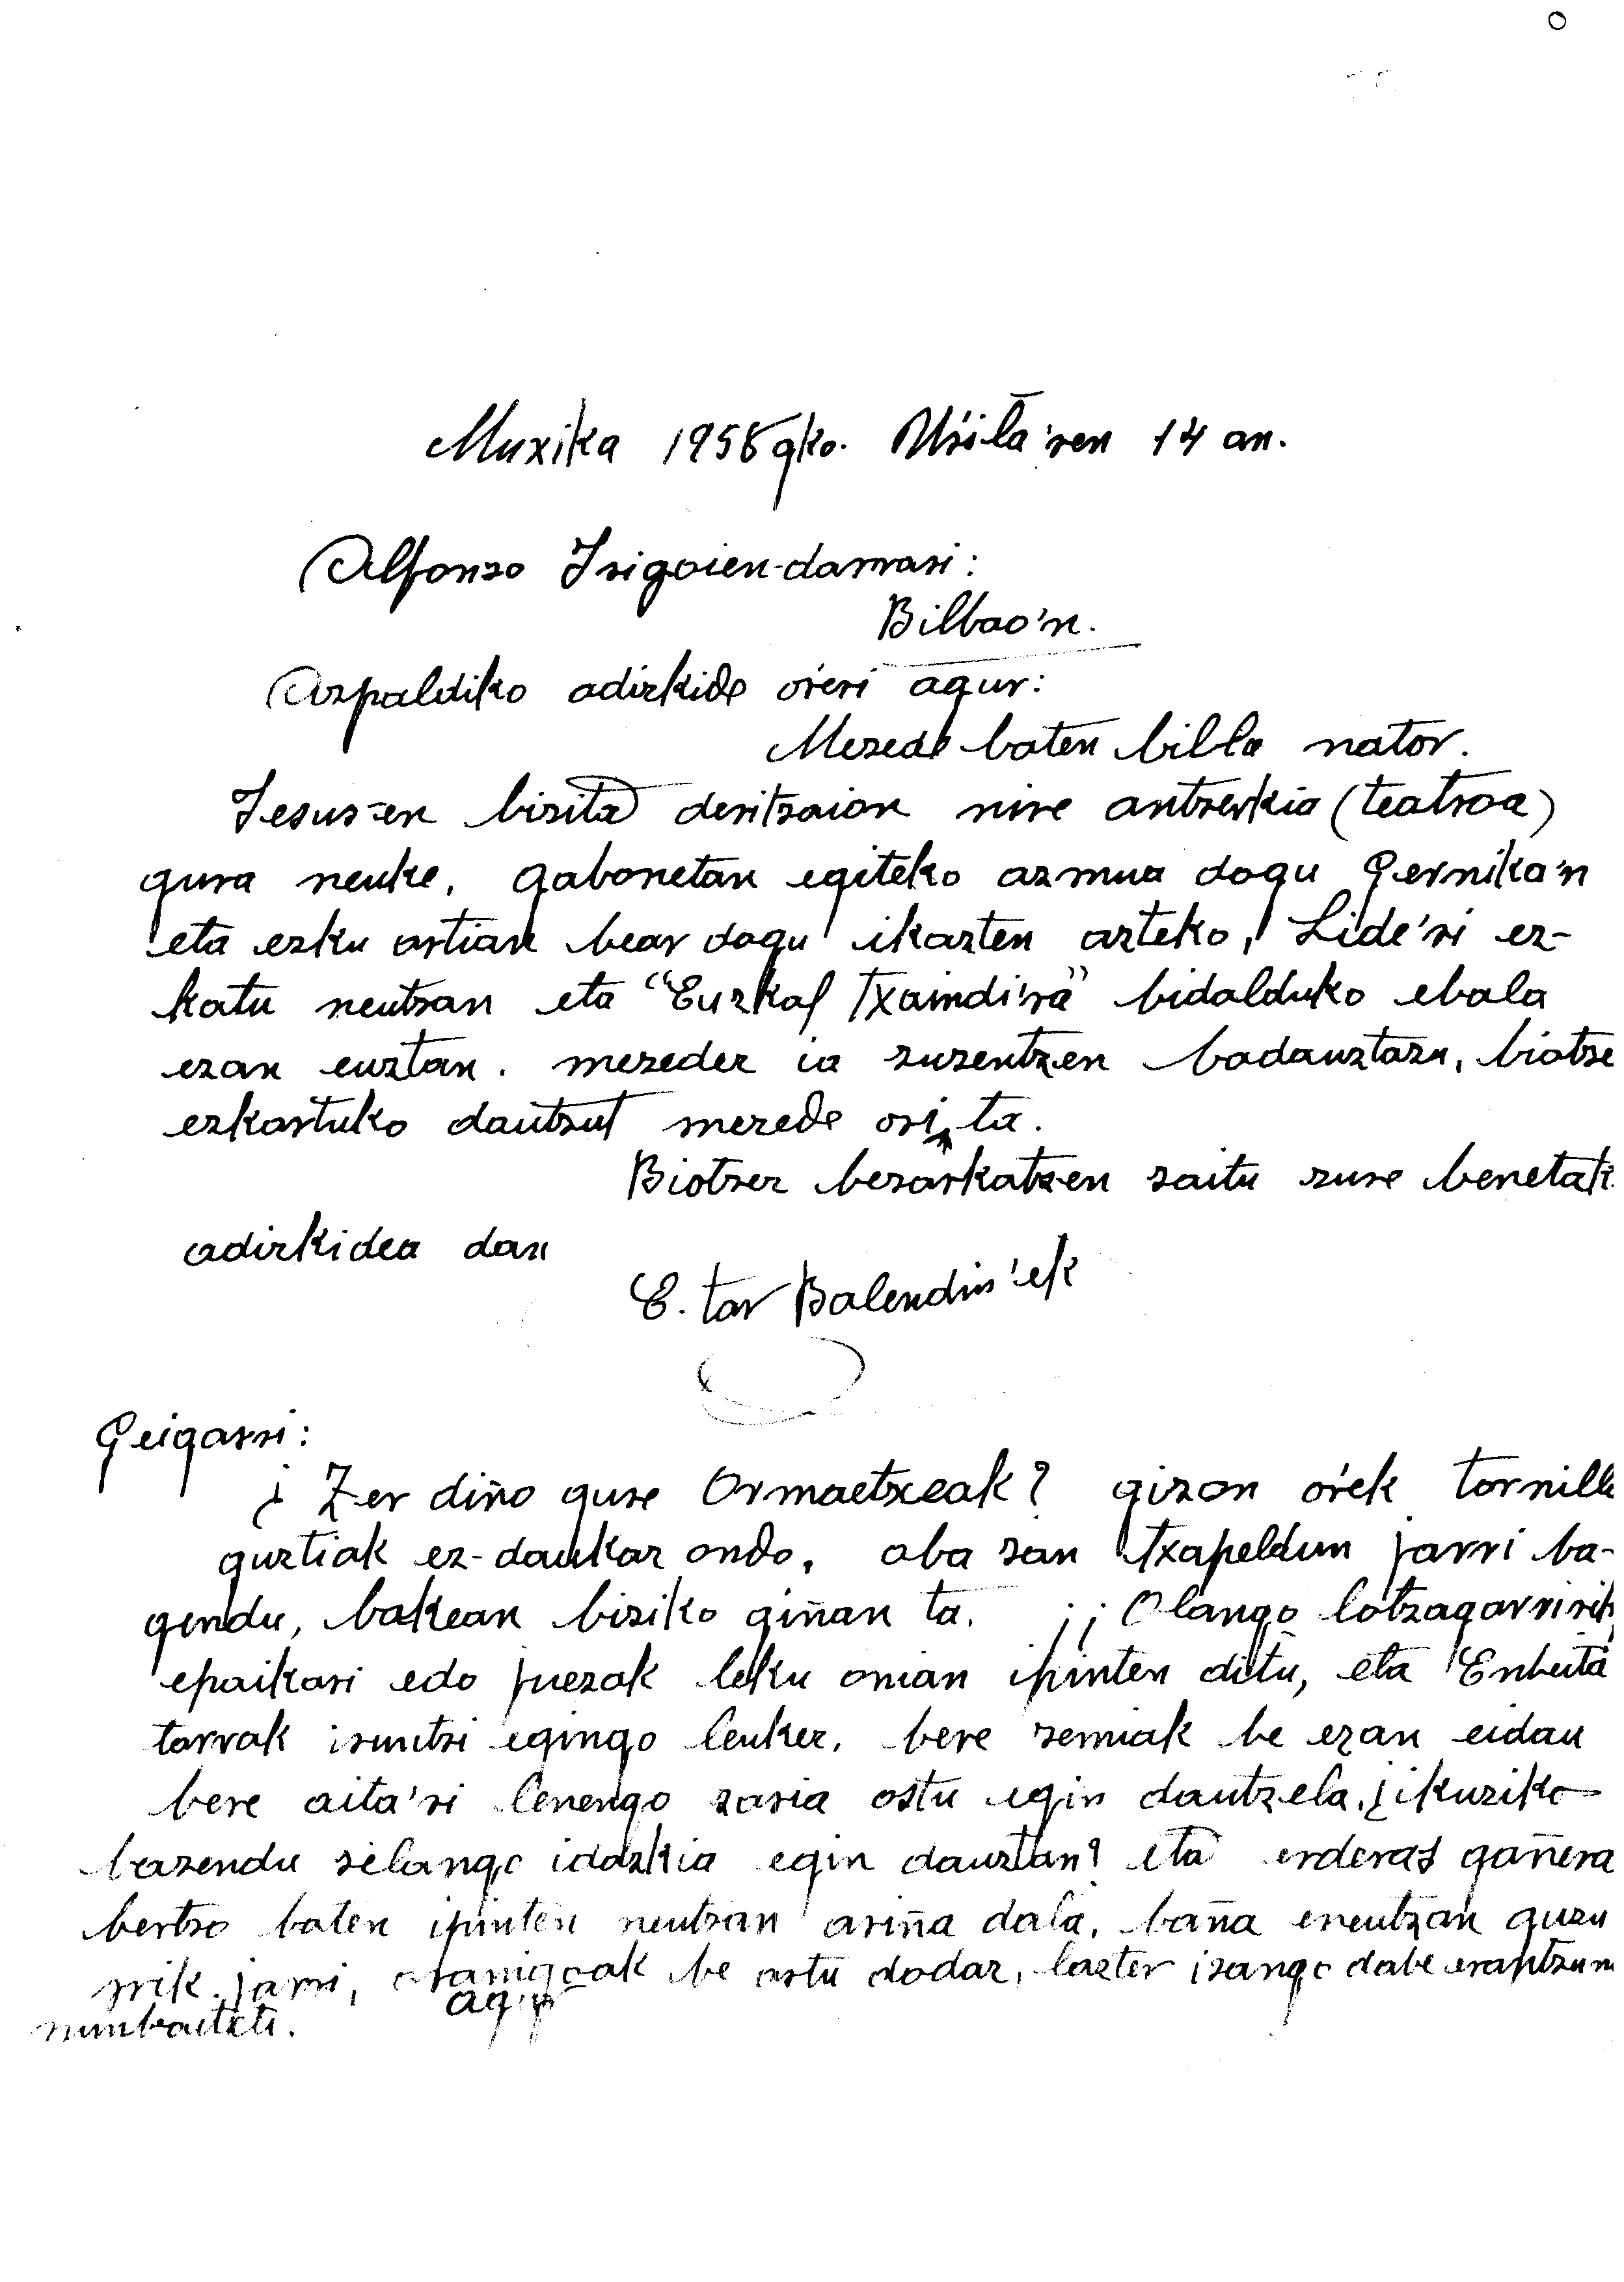 Muxika 1958gko. Uŕila'ren 14 an.
Alfonso Irigoien-damari:
Bilbao'n.
Azpaldiko adizkide oŕeri agur:
Mezede baten billa nator.
Jesus-en bizita deritzaion nire antzerkia (teatroa)
gura neuke, gabonetan egiteko azmua dogu Gernika'n
eta ezku artian bear dogu ikazten azteko, Lide'ri ez-
katu neutzan eta "Euzkal Txaindi'ra" bidalduko ebala
ezan euztan. mezedez ia zuzentzen badauztazu, biotze
ezkartuko dautzut mezede ori ta.
Biotzez bezarkatzen zaitu zure benetak
adizkidea dan
E. tar Balendin'ek
Geigarri:
¿ Zer diño gure Ormaetxeak? gizon oŕek tornillu
guztiak ez-daukaz ondo, oba zan txapeldun jarri ba-
gendu, bakean biziko giñan ta. ¡¡ Olango lotzagarririk
epaikari edo juezak leku onian ipinten ditu, eta Enbeita
tarrak iruntzi egingo leukez, bere semiak be ezan eidau
bere aita'ri lenengo zaria ostu egin dautzela, ¿ikuziko
bazendu zelango idazkia egin dauztan? eta erderaz gañera
bertzo baten ipinten neutzan ariña dala, baña eneutzan guzu
rrik jarri, orangoak be artu dodaz, lazter izango dabe erantzun
agur
nunbaiteti.